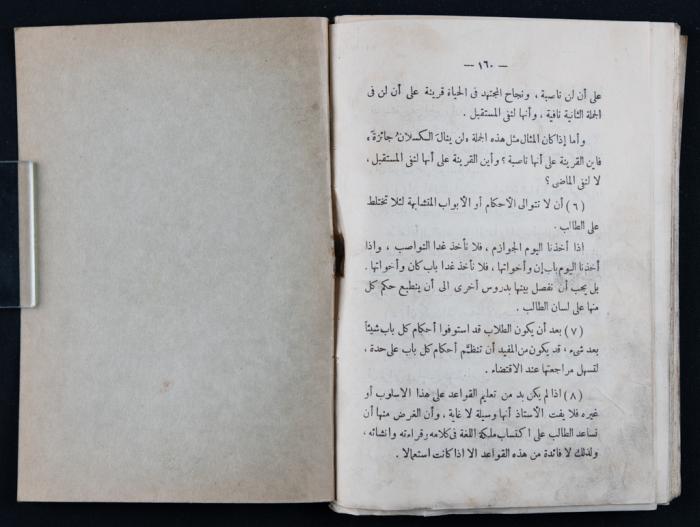 — ١٦٠ —
على أن لن ناصبة ، ونجاح المجتهد فى الحياة قرينة على أن لن فى
الجملة الثانية نافية ، وأنها لنفى المستقبل .
وأما إذا كان المثال مثل هذه الجملة «لن ينالَ الكسلانُ جائزةً»
فاين القرينة على أنها ناصبة ؟ وأين القرينة على أنها لنفى المستقبل ،
لا لنفى الماضى ؟
( ٦ ) أن لا تتوالى الأحكام أو الأبواب المتشابهة لئلا تختلط
على الطالب .
اذا أخذنا اليوم الجوازم ، فلا نأخذ غدا النواصب ، واذا
أخذنا اليوم باب إن وأخواتها ، فلا نأخذ غدا باب كان وأخواتها .
بل يجب أن نفصل بينها بدروس أخرى الى أن ينطبع حكم كل
منها على لسان الطالب .
( ٧ ) بعد أن يكون الطلاب قد استوفوا أحكام كل باب شيئاً
بعد شىء ، قد يكون من المفيد أن تنظَّم أحكام كل باب على حدة ،
لتسهل مراجعتها عند الاقتضاء .
( ٨ ) اذا لم يكن بد من تعليم القواعد على هذا الاسلوب أو
غيره فلا يفت الأستاذ أنها وسيلة لا غاية ، وأن الغرض منها أن
تساعد الطالب على اكتساب ملكة اللغة فى كلامه وقراءته وانشائه ،
ولذلك لا فائدة من هذه القواعد الا اذا كانت استعمالا .